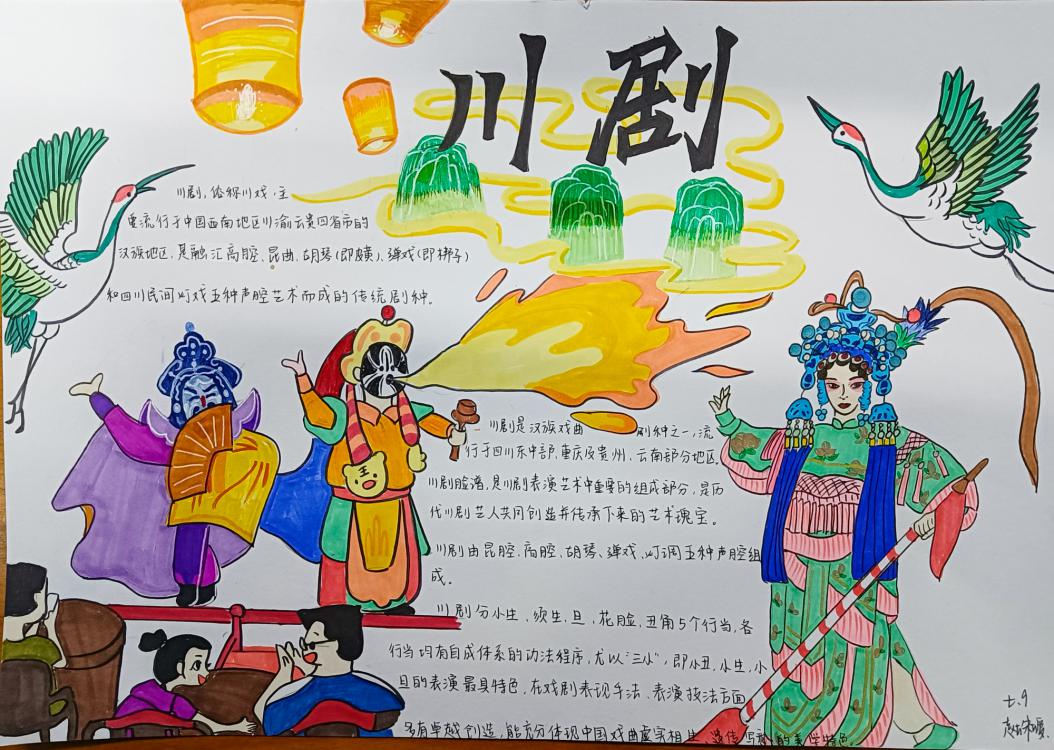 川剧
川剧，俗称川戏，主
要流行于中国西南地区川渝云贵四省市的
汉族地区，是融汇高腔、昆曲、胡琴(即皮黄)、弹戏(即梆子)
和四川民间灯戏五种声腔艺术而成的传统剧种。
川剧是汉族戏曲剧种之一，流
行于四川东中部、重庆及贵州、云南部分地区。
川剧脸谱，是川剧表演艺术中重要的组成部分，是历
代川剧艺人共同创造并传承下来的艺术瑰宝。
川剧由昆腔、高腔、胡琴、弹戏、灯调五种声腔组
成。
川剧分小生、须生、旦、花脸、丑角5个行当，各
行当均有自成体系的功法程序，尤以"三小"，即小丑、小生、小
旦的表演最具特色，在戏剧表现手法、表演技法方面
多有卓越创造，能充分体现中国戏曲虚实相生、遗传写意的美学特色
七.9